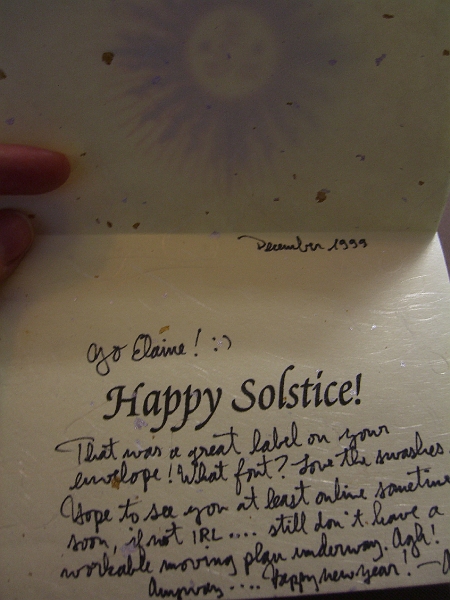 December 1999
Yo Elaine! :-)
Happy Solstice!
That was a great label on your
envelope! What font? Love the swashes.
Hope to see you at least online sometime
soon, if not IRL .... still don't have a
workable moving plan underway. Agh!
Anyway .... Happy new year! —